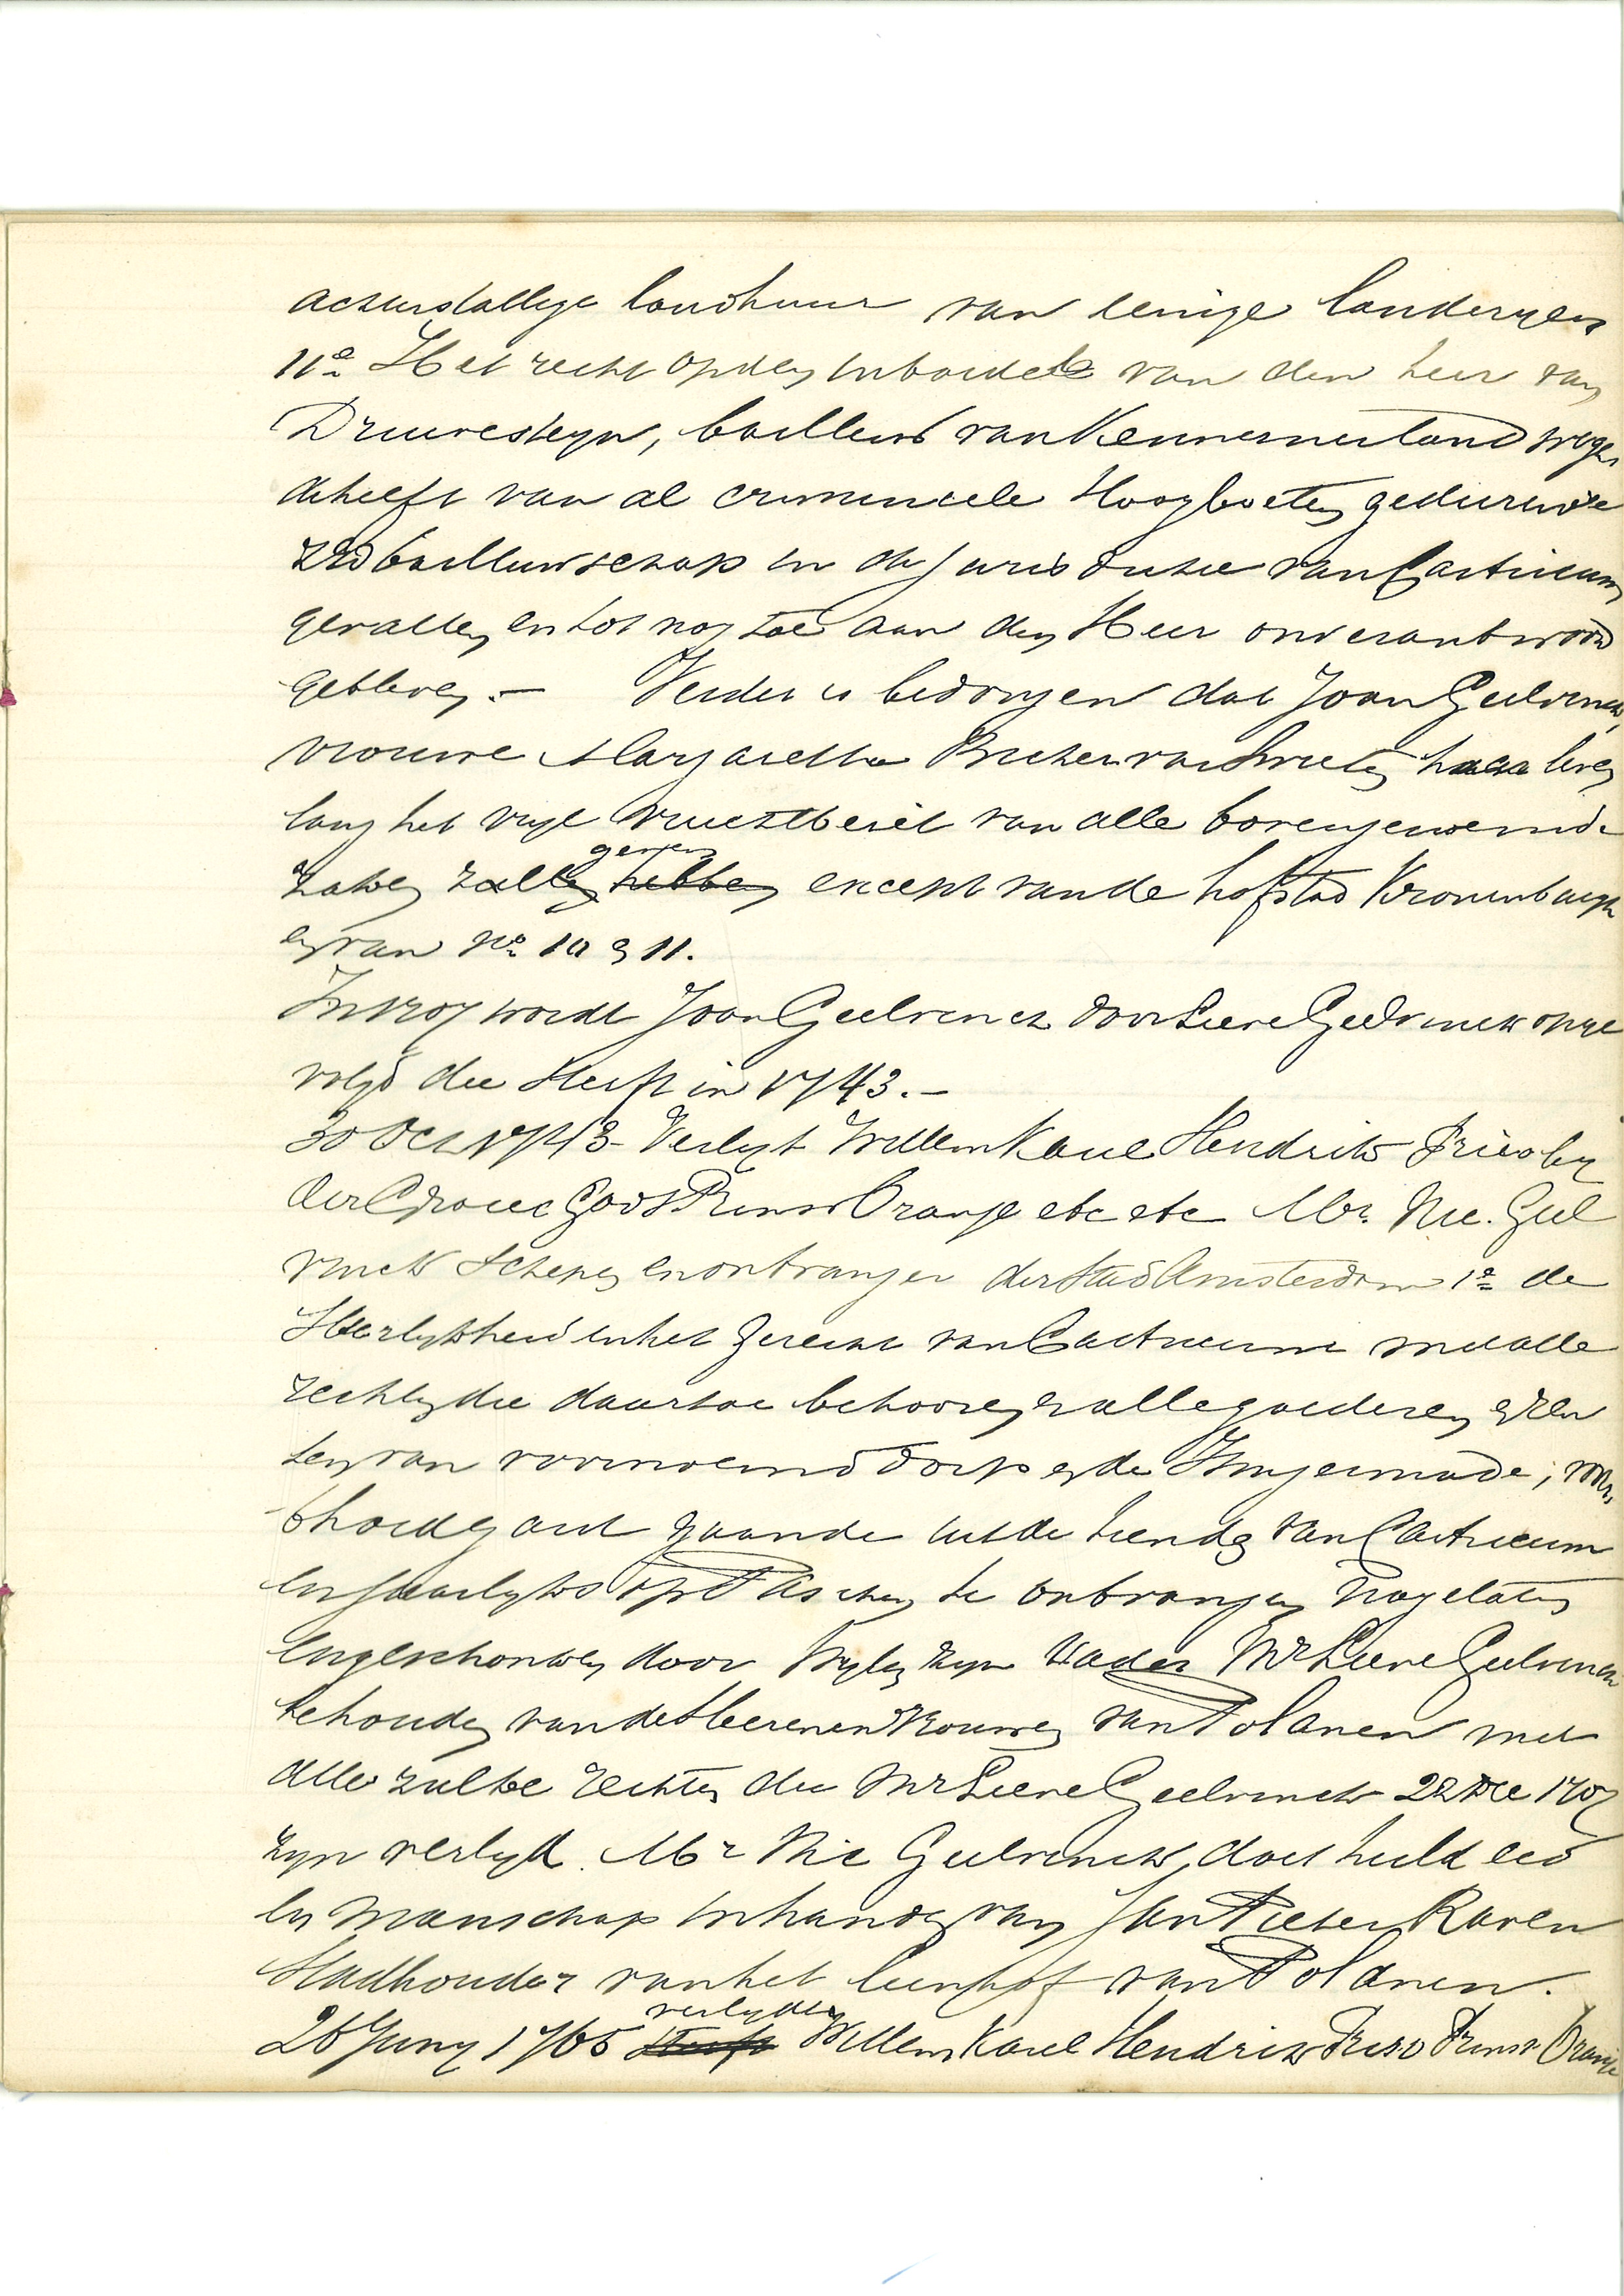 achterstallige landhuur van eenige landeryen
11e Het recht op den inboedel van den heer van
Druivesteyn, bailleuw van Kennemerland wegens
de helft van al crimineele Hoogboeten gedurende
zyd bailleuwschap in de jurisdictie van Castricum
gevallen en tot nog toe aan den Heer onverantwoord
gebleven. — Verder is bedongen dat Joan Geelvinck,
vrouwe Margaretha Bicker van Swieten haar leven
lang het vrye vruchtbezit van alle bovengenoemde
zaken zal hebben except van de hofstad Kronenburgh
en van No 10 en 11.
In 1707 wordt Joan Geelvinck door Lieve Geelvinck opge
volgd die sterft in 1743. —
30 Oct 1743 Verlyt Willem Karel Hendrik Friso by
der Gratie Gods Prins v Oranje etc etc Mr. Nic. Geel
vinck Schepen en ontvanger der Stad Amsterdam 1e de
Heerlykheid en het Gerecht van Castricum met alle
rechten die daartoe behooren en alle goederen en ren
ten van voornoemd dorp en de
gaande uit de tienden van Castricum
en jaarlyks op Paschen te ontvangen nagelaten
en geschonken door Wylen zyn Vader Mr Lieve Geelvinck
behouden van de Heeren en Vrouwen van Polanen met
alle zulke rechten die Mr Lieve Geelvinck 22 Dec 1707
zyn verlyd. Mr Nic Geelvinck, doet huld eed
en manschap in handen van Jan Pieter Raven
Stadhouder van het leenhof van Polanen.
verlyden
26 Juny 1765 sterft Willem Karel Hendrik Friso Prins v. Oranje